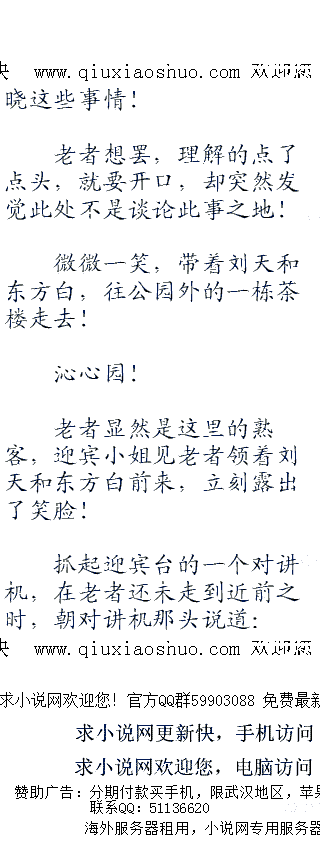 快 www.qiuxiaoshuo.com 欢迎您
晓这些事情！
老者想罢，理解的点了
点头，就要开口，却突然发
觉此处不是谈论此事之地！
微微一笑，带着刘天和
东方白，往公园外的一栋茶
楼走去！
沁心园！
老者显然是这里的熟
客，迎宾小姐见老者领着刘
天和东方白前来，立刻露出
了笑脸！
抓起迎宾台的一个对讲
机，在老者还未走到近前之
时，朝对讲机那头说道：
快 www.qiuxiaoshuo.com 欢迎您
求小说网欢迎您！官方QQ群59903088 免费最新
求小说网更新快，手机访问
求小说网欢迎您，电脑访问
赞助广告：分期付款买手机，限武汉地区，苹果
联系QQ：51136620
海外服务器租用，小说网专用服务器